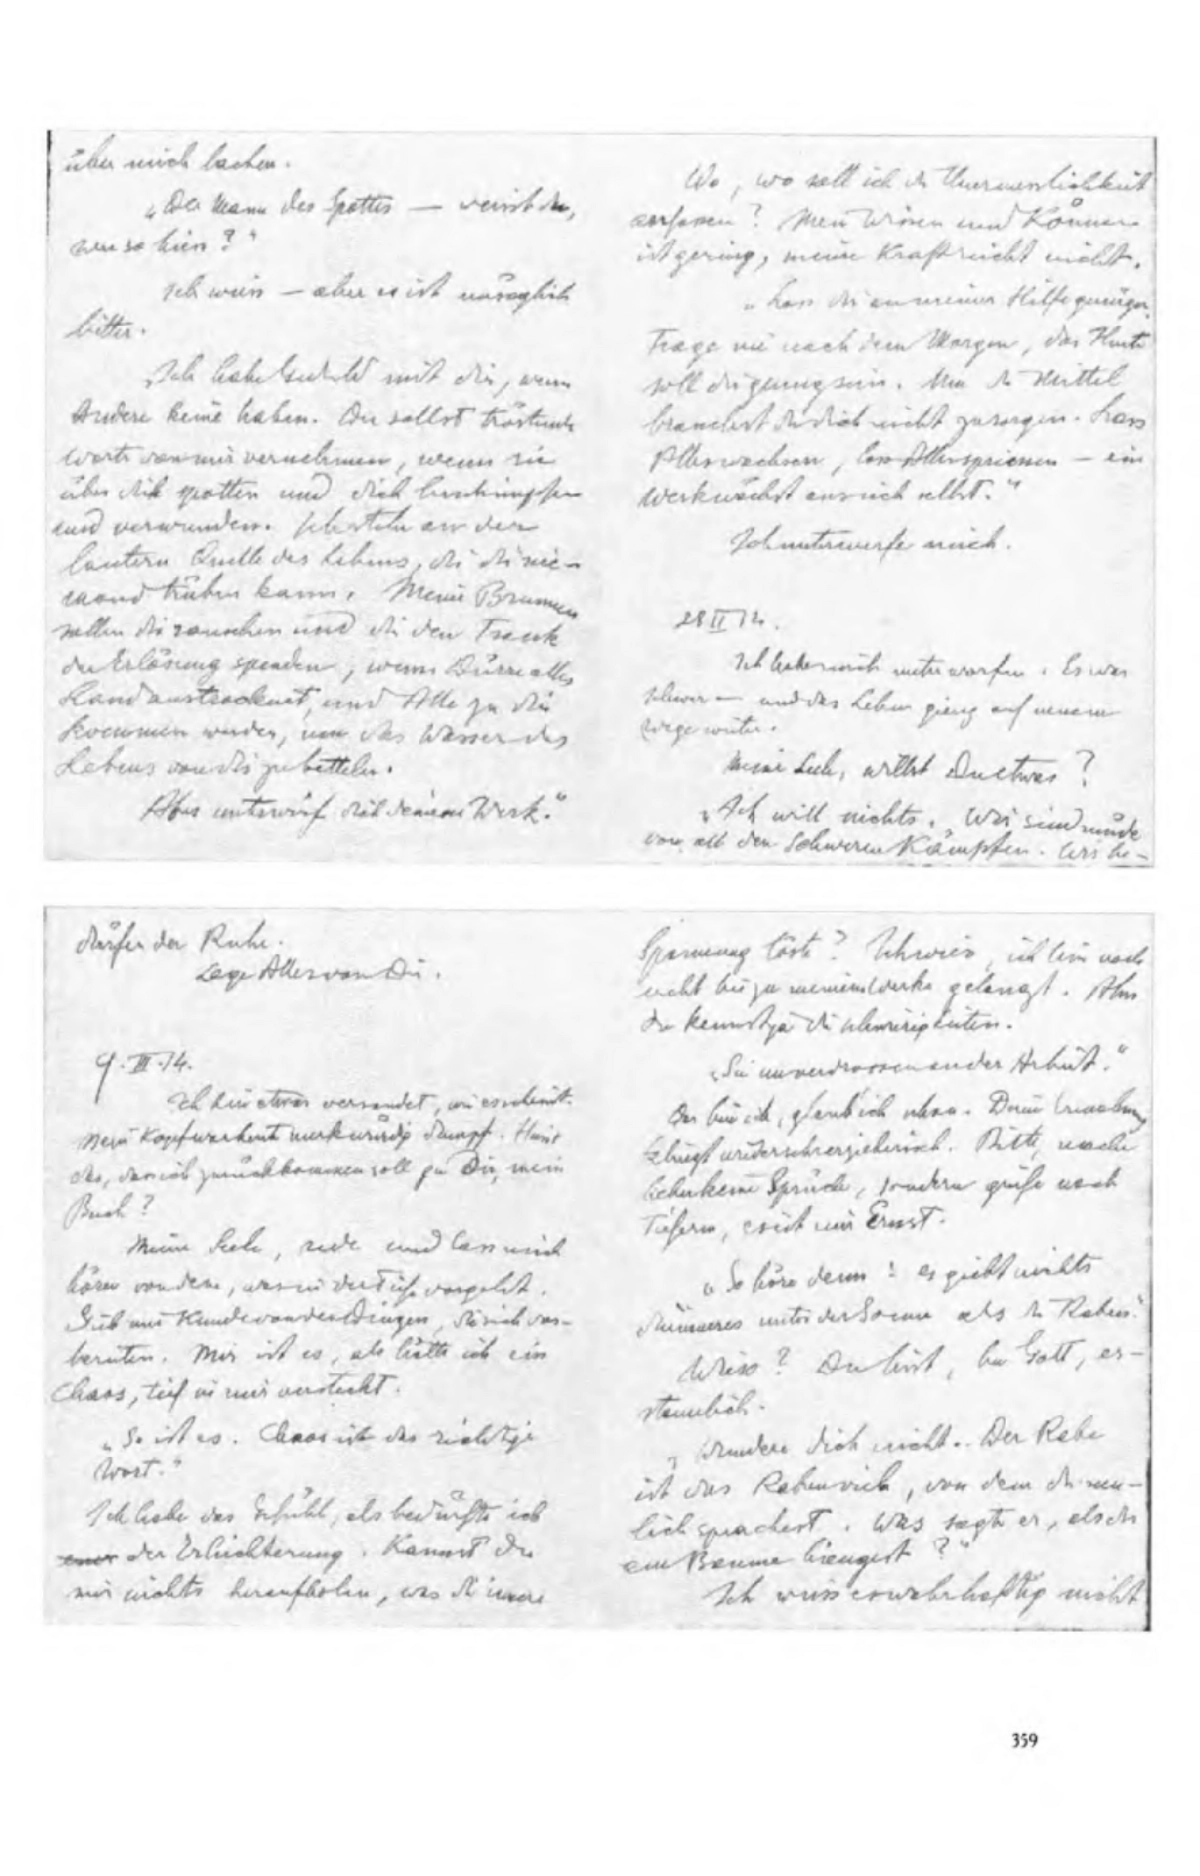 über mich lachen.
„Der Mann des Spottes — weisst du,
wer so hiess?“
Ich weiss — aber es ist unsäglich
bitter.
„Ich habe Geduld mit dir, wenn
Andere keine haben. Du sollst tröstende
Worte von mir vernehmen, wenn sie
über dich spotten und dich beschimpfen
und verwunden. Ich stehe an der
lautern Quelle des Lebens, die dir nie-
mand trüben kann. Meine Brunnen
sollen dir rauschen und dir den Trank
der Erlösung spenden, wenn Dürre alles
Land austrocknet, und Alle zu dir
kommen werden, um das Wasser des
Lebens von dir zu betteln.
Also unterwirf dich deinem Werk.“
Wo, wo soll ich die Unermesslichkeit
anfassen? Mein Wissen und Können
ist gering, meine Kraft reicht nicht.
„Lass dir an meiner Hilfe genügen.
Frage nie nach dem Morgen, das Heute
soll dir genug sein. Um die Mittel
brauchst du dich nicht zu sorgen. Lass
Alles wachsen, lass Alles spriessen — ein
Werk wächst aus sich selbst.“
Ich unterwerfe mich.
28 II 14.
Ich habe mich unterworfen. Es war
schwer — und das Leben gieng auf neuem
Wege weiter.
Meine Seele, willst Du etwas?
„Ich will nichts. Wir sind müde
von all den schweren Kämpfen. Wir be-
dürfen der Ruhe.
Lege Alles von Dir.
9. III. 14.
Ich bin etwas versandet, wie es scheint.
Mein Kopf war heut merkwürdig dumpf. Heisst
das, dass ich zurückkommen soll zu Dir, mein
Buch?
Meine Seele, rede und lass mich
hören von dem, was in der Tiefe vorgeht.
Gieb mir Kunde von den Dingen, die sich vor-
bereiten. Mir ist es, als hätte ich ein
Chaos, tief in mir versteckt.
„So ist es. Chaos ist das richtige
Wort.“
Ich habe das Gefühl, als bedürfte ich
der Erleichterung. Kannst du
mir nichts heraufholen, was die innere
Spannung löste? Ich weiss, ich bin noch
nicht bis zu meinem Werke gelangt. Aber
du kennst ja die Schwierigkeiten.
„Sei unverdrossen an der Arbeit.“
Das bin ich, glaub ich schon. Deine Ermahnung
klingt wieder sehr erzieherisch. Bitte, mache
lieber keine Sprüche, sondern greife nach
Tiefern, es ist mir Ernst.
„So höre denn: es giebt nichts
dümmeres unter der Sonne als die Raben.“
Wieso? Du bist, bei Gott, er-
staunlich.
„Wundere dich nicht. Der Rabe
ist das Rabenvieh, von dem du neu-
lich sprachest. Was sagte er, als du
am Baume hiengest?“
Ich weiss es wahrhaftig nicht
359